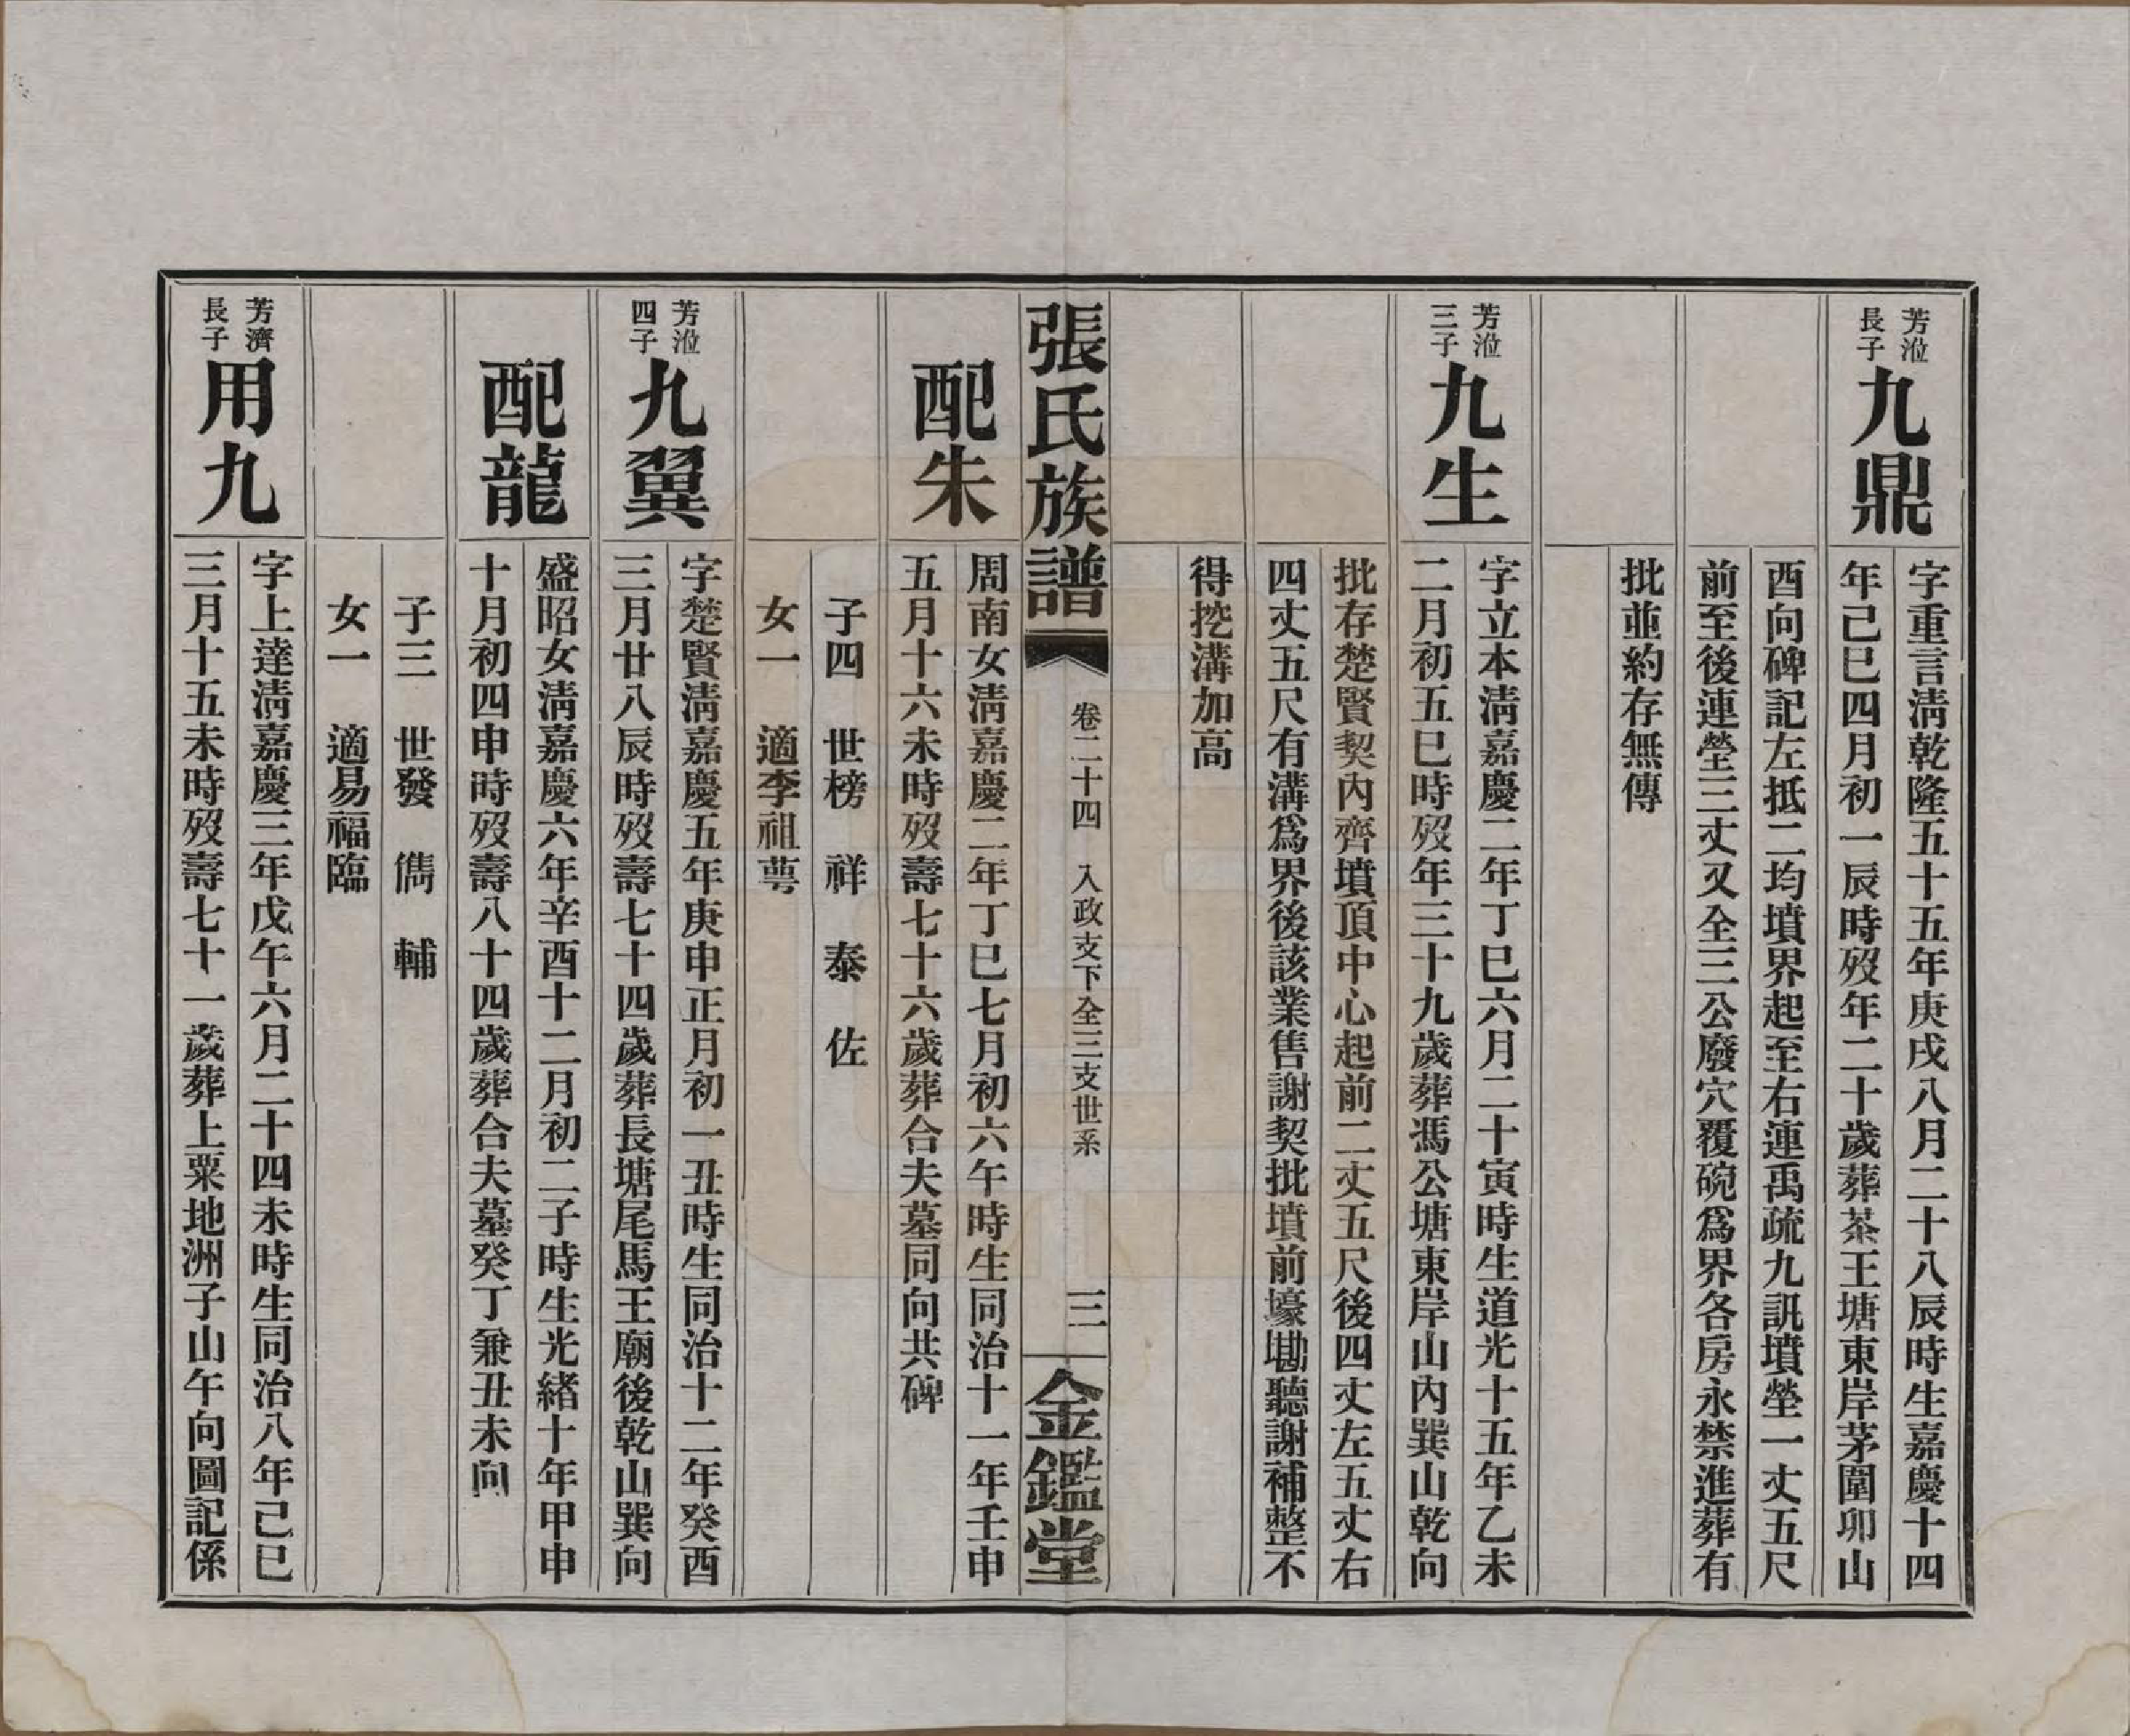 芳涖
長子
九鼎
字重言淸乾隆五十五年庚戌八月二十八辰時生嘉慶十四
年己巳四月初一辰時歿年二十歲葬茶王塘東岸茅圍卯山
酉向碑記左抵二均墳界起至右連禹疏九訊墳塋一丈五尺
前至後連塋三丈又全三公廢穴覆碗爲界各房永禁進葬有
批並約存無傳
芳涖
三子
九生
字立本淸嘉慶二年丁巳六月二十寅時生道光十五年乙未
二月初五巳時歿年三十九歲葬馮公塘東岸山內巽山乾向
批存楚賢契內齊墳頂中心起前二丈五尺後四丈左五丈右
四丈五尺有溝爲界後該業售謝契批墳前壕墈聽謝補整不
得挖溝加高
張氏族譜
卷二十四 入政支下全三支世系
三
金鑑堂
配朱
周南女淸嘉慶二年丁巳七月初六午時生同治十一年壬申
五月十六未時歿壽七十六歲葬合夫墓同向共碑
子四 世榜 祥 泰 佐
女一 適李祖蕚
芳涖
四子
九翼
字楚賢淸嘉慶五年庚申正月初一丑時生同治十二年癸酉
三月廿八辰時歿壽七十四歲葬長塘尾馬王廟後乾山巽向
配龍
盛昭女淸嘉慶六年辛酉十二月初二子時生光緒十年甲申
十月初四申時歿壽八十四歲葬合夫墓癸丁兼丑未向
子三 世發 儁 輔
女一 適易福臨
芳濟
長子
用九
字上達淸嘉慶三年戊午六月二十四未時生同治八年己巳
三月十五未時歿壽七十一歲葬上粟地洲子山午向圖記係